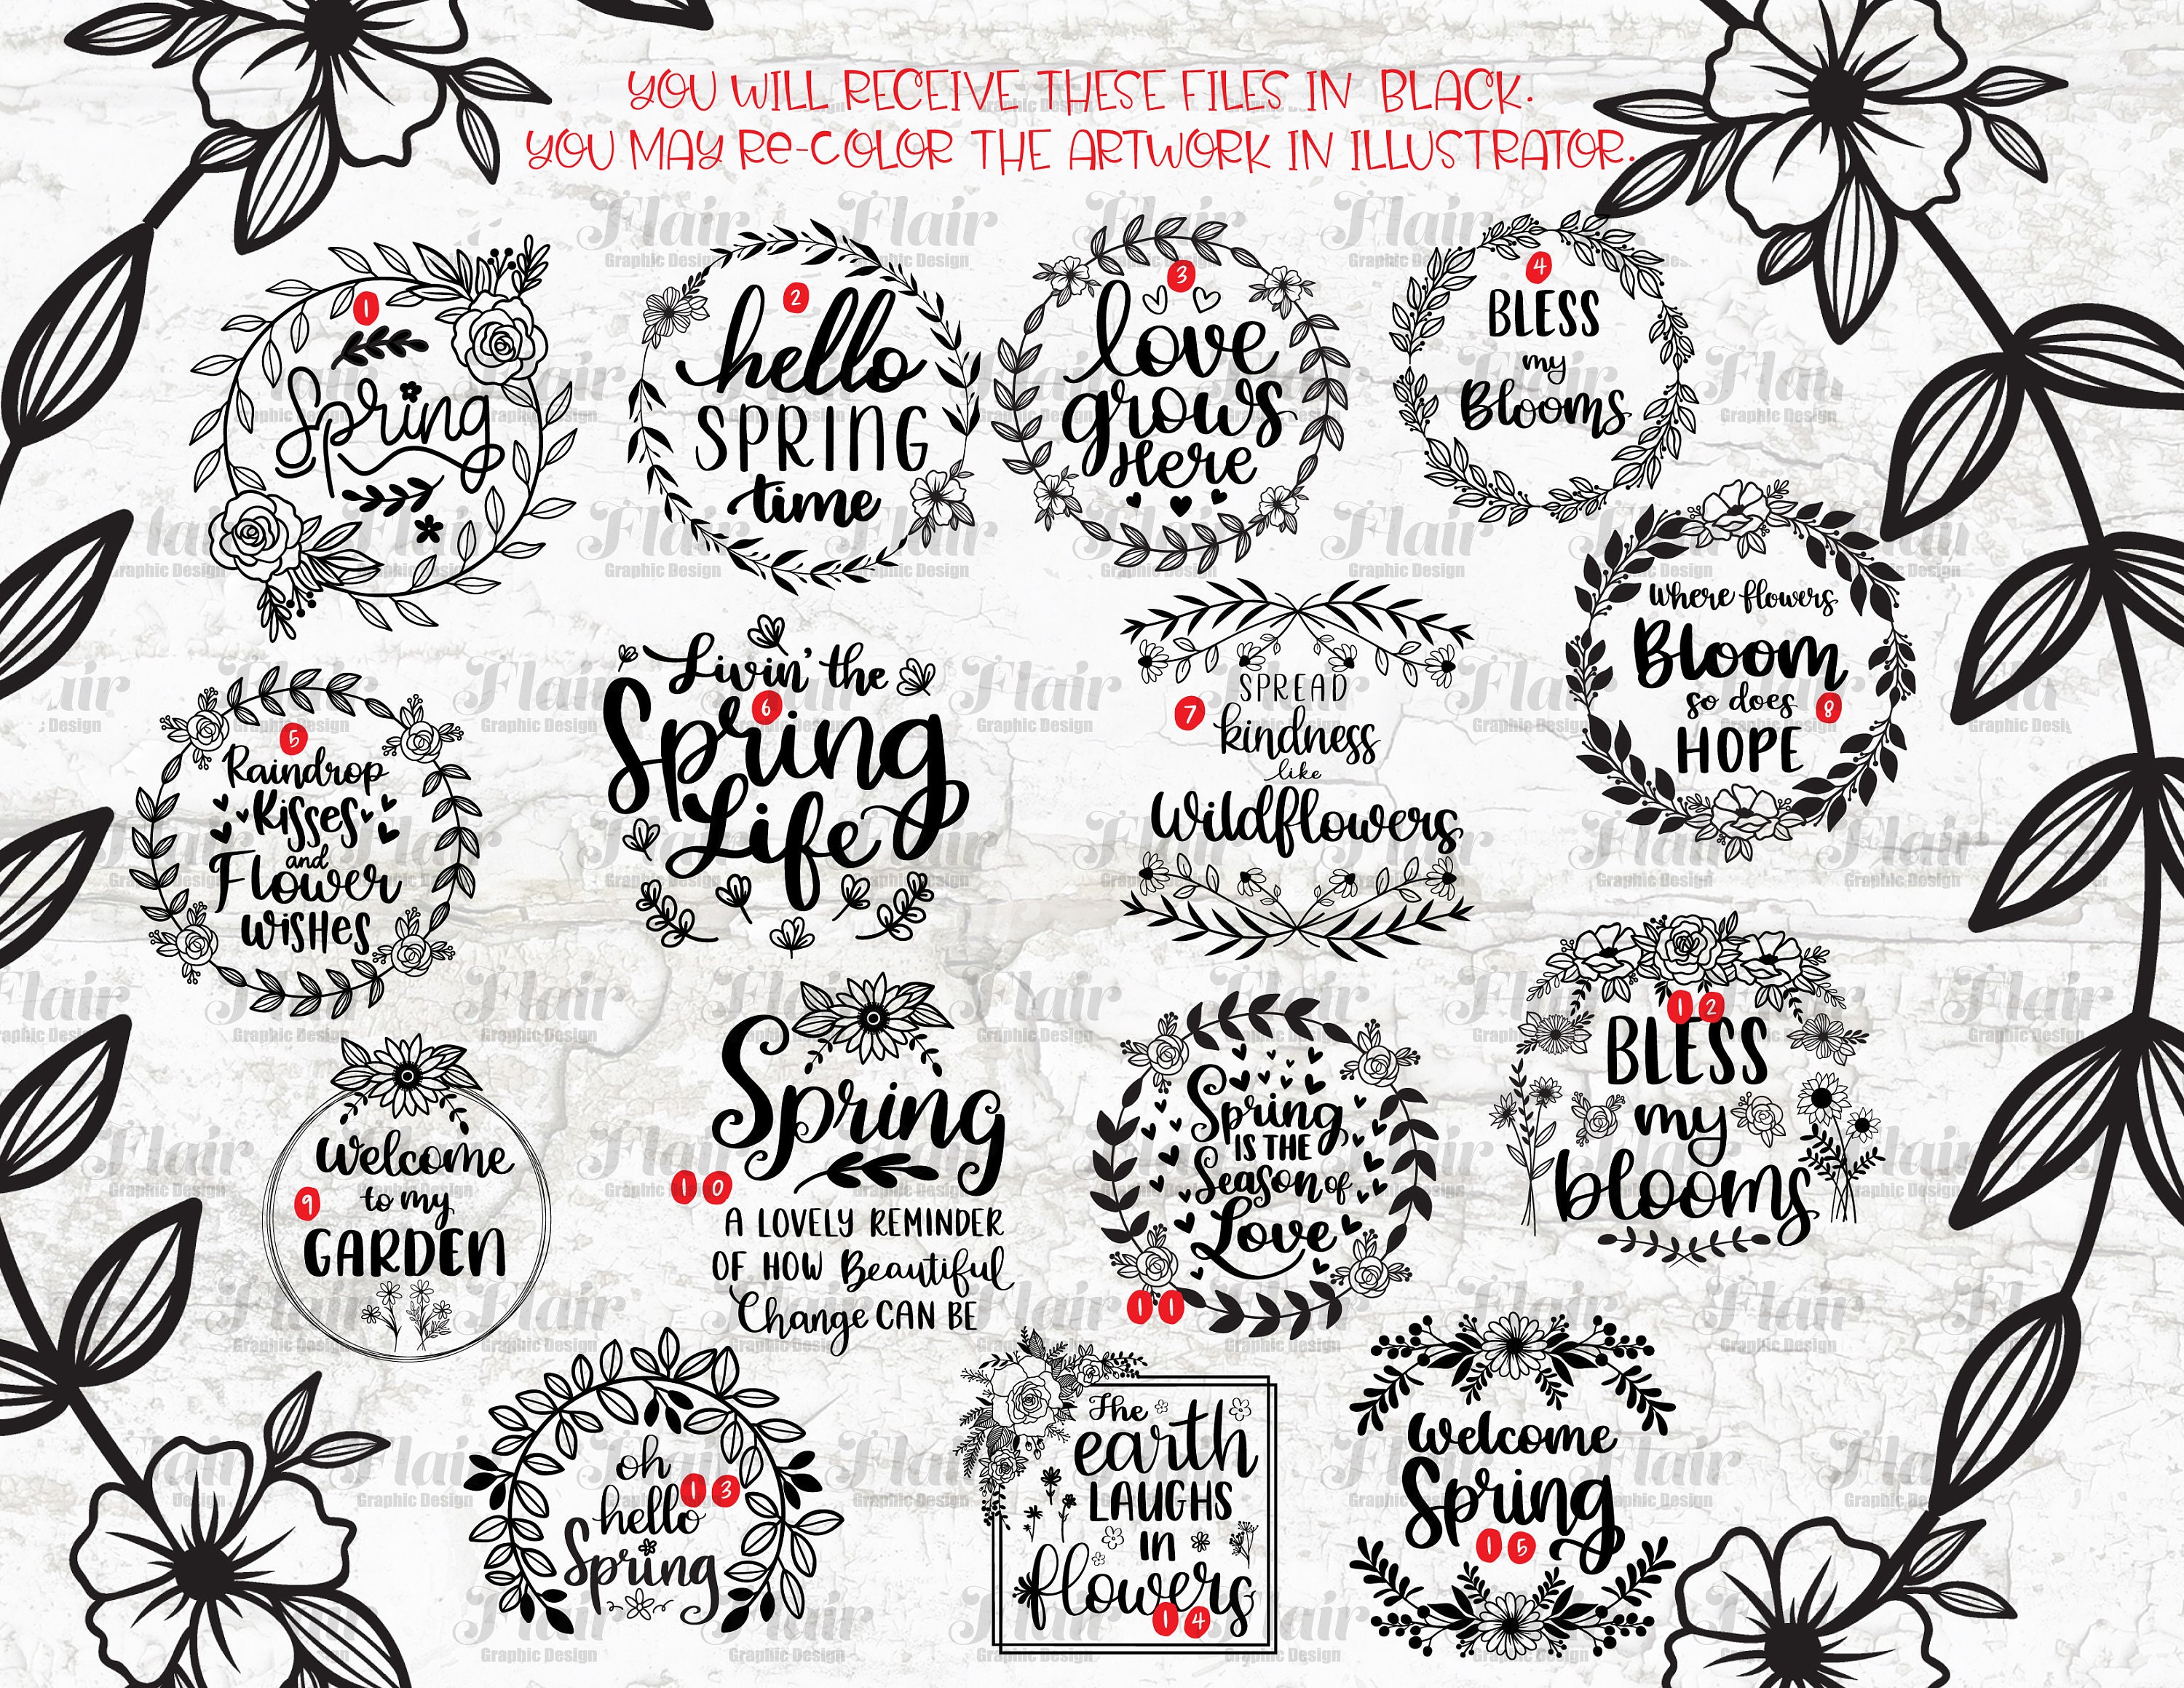 YOU WILL RECEIVE THESE FILES IN BLACK.
YOU MAY Re-COLOR THE ARTWORK IN ILLUSTRATOR.
1
Spring
2
hello
SPRING
time
3
love
grows
Here
4
BLESS
my
Blooms
5
Raindrop
Kisses
and
Flower
WISHes
Livin' the
6
Spring
Life
SPREAD
7
kindness
like
Wildflowers
Where flowers
Bloom
so does
8
HOPE
Welcome
9
to my
GARDEN
Spring
10
A LOVELY REMINDER
OF HOW Beautiful
Change CAN BE
Spring
IS THE
Season of
Love
11
12
BLESS
my
blooms
oh
13
hello
Spring
The
earth
LAUGHS
in
flowers
14
Welcome
Spring
15
Flair
Graphic Design